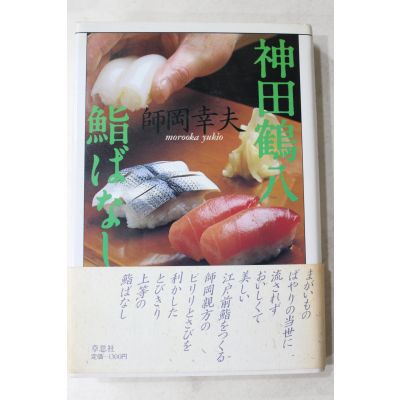 神田鶴八
鮨ばなし
師岡幸夫
morooka yukio
まがいもの
ばやりの当世に
流されず
おいしくて
美しい
江戸前鮨をつくる
師岡親方の
ピリリとさびを
利かした
とびきり
上等の
鮨ばなし
草思社
定価—1300円